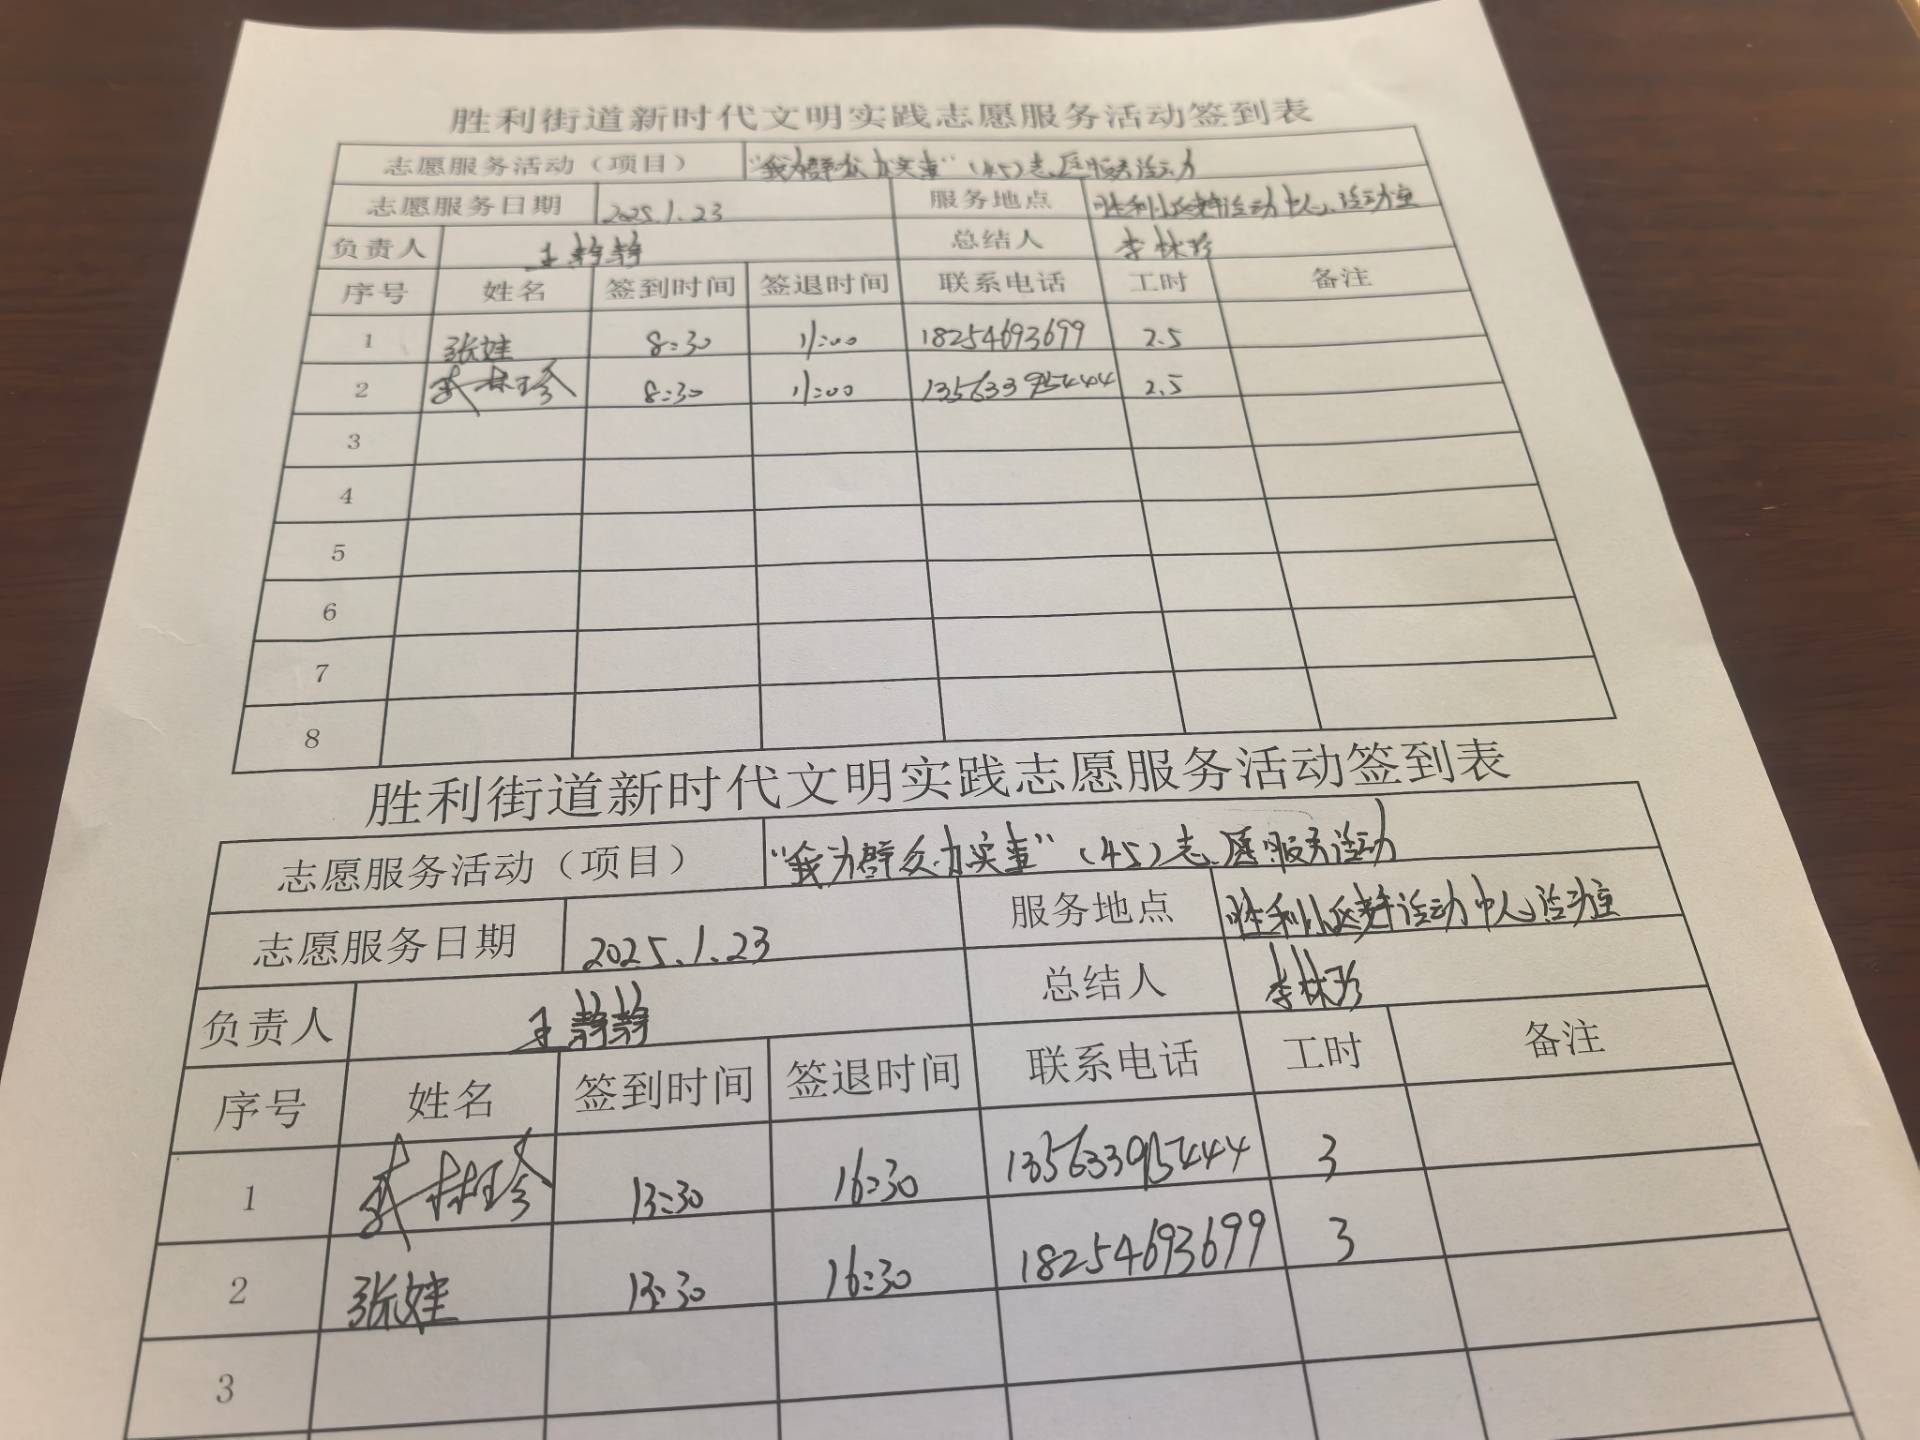 胜利街道新时代文明实践志愿服务活动签到表
志愿服务活动（项目） “我为群众办实事”（45）志愿服务活动
志愿服务日期 2025.1.23 服务地点 胜利小区党群活动中心活动室
负责人 王静静 总结人 李林珍
序号 姓名 签到时间 签退时间 联系电话 工时 备注
1 张娃 8:30 11:00 18254693699 2.5
2 李林珍 8:30 11:00 13563395444 2.5
3
4
5
6
7
8
胜利街道新时代文明实践志愿服务活动签到表
志愿服务活动（项目） “我为群众办实事”（45）志愿服务活动
志愿服务日期 2025.1.23 服务地点 胜利小区党群活动中心活动室
负责人 王静静 总结人 李林珍
序号 姓名 签到时间 签退时间 联系电话 工时 备注
1 李林珍 13:30 16:30 13563395444 3
2 张娃 13:30 16:30 18254693699 3
3